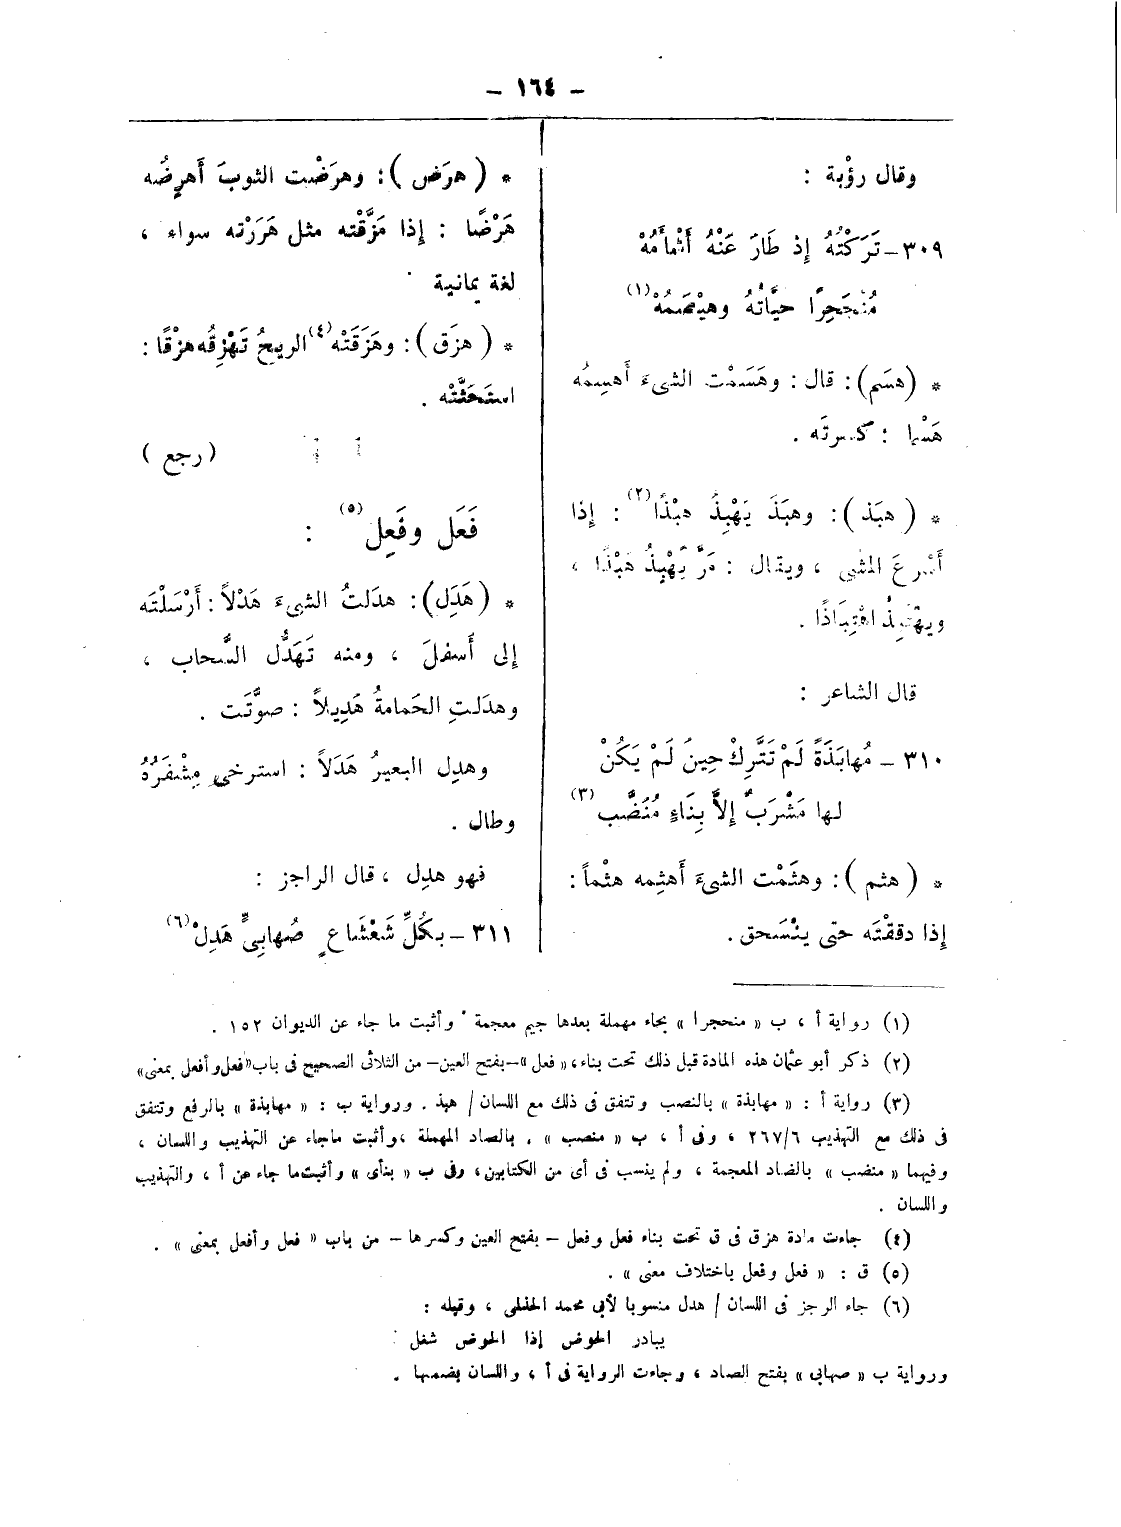 – ١٦٤ –
وقال رؤْبة :
٣٠٩ – تَرَكْتُهُ إِذ طَارَ عَنْهُ أَثْمأَمُهْ
مُنْجَحِرًا حيَّاتُهُ وهيْصَمُهْ (١)
* (هسَم) : قال : وهَسَمْت الشىءَ أَهسِمُه
هَسْما : كسرتَه .
* ( هبَذ ) : وهبَذَ يَهْبِذُ هبْذًا (٢) : إِذا
أَسْرعَ المشى ، ويقال : مَرَّ يَهْبِذُ هَبْذًا ،
ويهْتَبِذُ اهْتِبَاذًا .
قال الشاعر :
٣١٠ – مُهابَذَةً لَمْ تَتَّرِكْ حِينَ لَمْ يَكُنْ
لها مَشْرَبٌ إِلاَّ بِنَاءٍ مُنَضَّب (٣)
* ( هثم ) : وهثَمْت الشىءَ أَهثِمه هثْماً :
إِذا دققْتَه حتى ينْسَحق .
* ( هرَض ) : وهرَضْت الثوبَ أَهرِضُه
هَرْضًا : إِذا مَزَّقْته مثل هَرَرْته سواء ،
لغة يمانية
* ( هزَق ) : وهَزَقَتْه (٤) الريحُ تَهْزِقُه هزْقًا :
استَحَثَّتْه .
( رجع )
فَعَل وفَعِل (٥) :
* ( هَدَل ) : هدَلتُ الشىءَ هَدْلاً : أَرْسَلْتَه
إِلى أَسفلَ ، ومنه تَهَدُّل السَّحاب ،
وهدَلتِ الحَمامةُ هَدِيلاً : صوَّتَت .
وهدِل البعيرُ هَدَلاً : استرخى مِشْفَرُهُ
وطال .
فهو هدِل ، قال الراجز :
٣١١ – بكُلِّ شَعْشَاعٍ صُهابِىٍّ هَدِلْ (٦)
(١) رواية أ ، ب « منحجرا » بحاء مهملة بعدها جيم معجمة . وأثبت ما جاء عن الديوان ١٥٢ .
(٢) ذكر أبو عثمان هذه المادة قبل ذلك تحت بناء، « فعل » – بفتح العين – من الثلاثى الصحيح فى باب « فعل وأفعل بمعنى »
(٣) رواية أ : « مهابذة » بالنصب وتتفق فى ذلك مع اللسان / هبذ . ورواية ب : « مهابذة » بالرفع وتتفق
فى ذلك مع التهذيب ٢٦٧/٦ ، وفى أ ، ب « منصب » . بالصاد المهملة ، وأثبت ماجاء عن التهذيب واللسان ،
وفيهما « منضب » بالضاد المعجمة ، ولم ينسب فى أى من الكتابين، وفى ب « بنأى » وأثبت ما جاء عن أ ، والتهذيب
واللسان .
(٤) جاءت مادة هزق فى ق تحت بناء فعل وفعل – بفتح العين وكسرها – من باب « فعل وأفعل بمعنى » .
(٥) ق : « فعل وفعل باختلاف معنى » .
(٦) جاء الرجز فى اللسان / هدل منسوبا لأبى محمد الحذلمى ، وقبله :
يبادر الحوض إذا الحوض شغل
ورواية ب « صهابى » بفتح الصاد ، وجاءت الرواية فى أ ، واللسان بضمها .